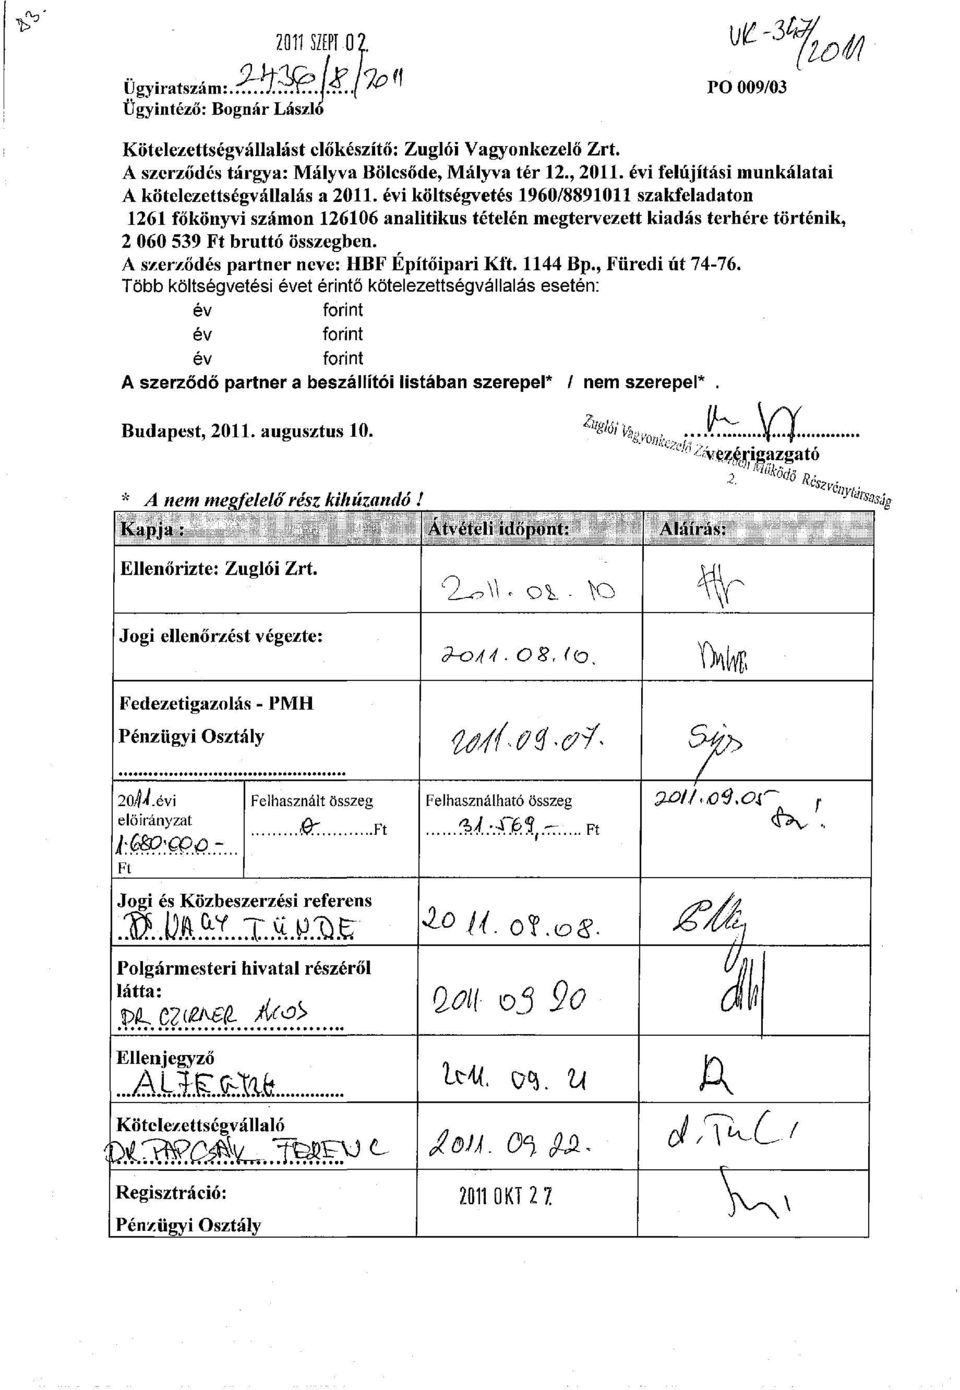 2011 SZEPT 02.
VK-347/2011
Ügyiratszám: 2436/8/2011
PO 009/03
Ügyintéző: Bognár László
Kötelezettségvállalást előkészítő: Zuglói Vagyonkezelő Zrt.
A szerződés tárgya: Mályva Bölcsőde, Mályva tér 12., 2011. évi felújítási munkálatai
A kötelezettségvállalás a 2011. évi költségvetés 1960/8891011 szakfeladaton
1261 főkönyvi számon 126106 analitikus tételén megtervezett kiadás terhére történik,
2 060 539 Ft bruttó összegben.
A szerződés partner neve: HBF Építőipari Kft. 1144 Bp., Füredi út 74-76.
Több költségvetési évet érintő kötelezettségvállalás esetén:
év forint
év forint
év forint
A szerződő partner a beszállítói listában szerepel* / nem szerepel* .
Budapest, 2011. augusztus 10.
Zuglói Vagyonkezelő
vezérigazgató
Működő Részvénytársaság
2.
* A nem megfelelő rész kihúzandó !
Kapja : Átvételi időpont: Aláírás:
Ellenőrizte: Zuglói Zrt. 2011. 08. 10
Jogi ellenőrzést végezte: 2011. 08. 10.
Fedezetigazolás - PMH
Pénzügyi Osztály 2011.09.07.
2011.évi Felhasznált összeg Felhasználható összeg 2011.09.05
előirányzat ..........0...........Ft ......31.569,-...... Ft
1.680.000.-
Ft
Jogi és Közbeszerzési referens
DR. NAGY TÜNDE 2011. 09. 08.
Polgármesteri hivatal részéről
látta: 2011 09 20
DR. CZIRNER ÁKOS
Ellenjegyző 2011. 09. 21
Kötelezettségvállaló
DR. PAPCSÁK FERENC 2011. 09 22.
Regisztráció: 2011 OKT 27.
Pénzügyi Osztály